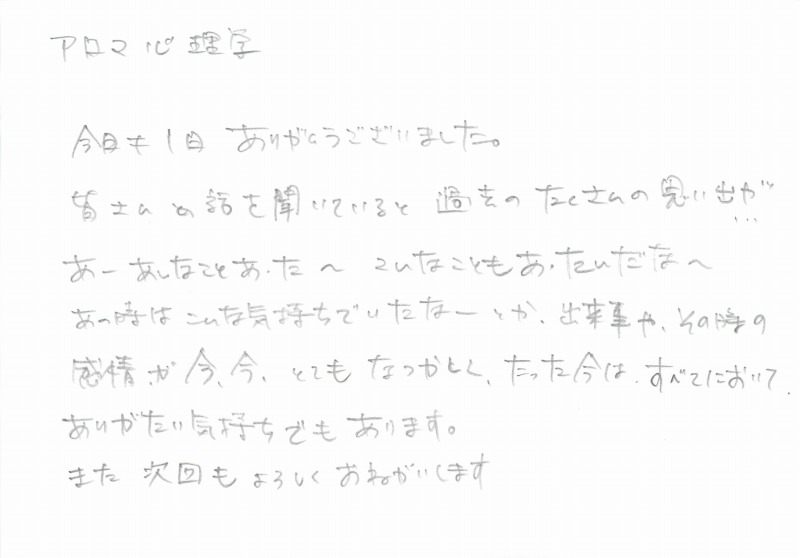 アロマ心理学
今日も1日 ありがとうございました。
皆さんの話を聞いていると 過去のたくさんの思い出が…
あーあんなことあったへ こんなこともあったんだなへ
あの時はこんな気持ちでいたなーとか、出来事や、その時の
感情が今、今、とてもなつかしく、たった今は、すべてにおいて
ありがたい気持ちでもあります。
また次回もよろしくおねがいします